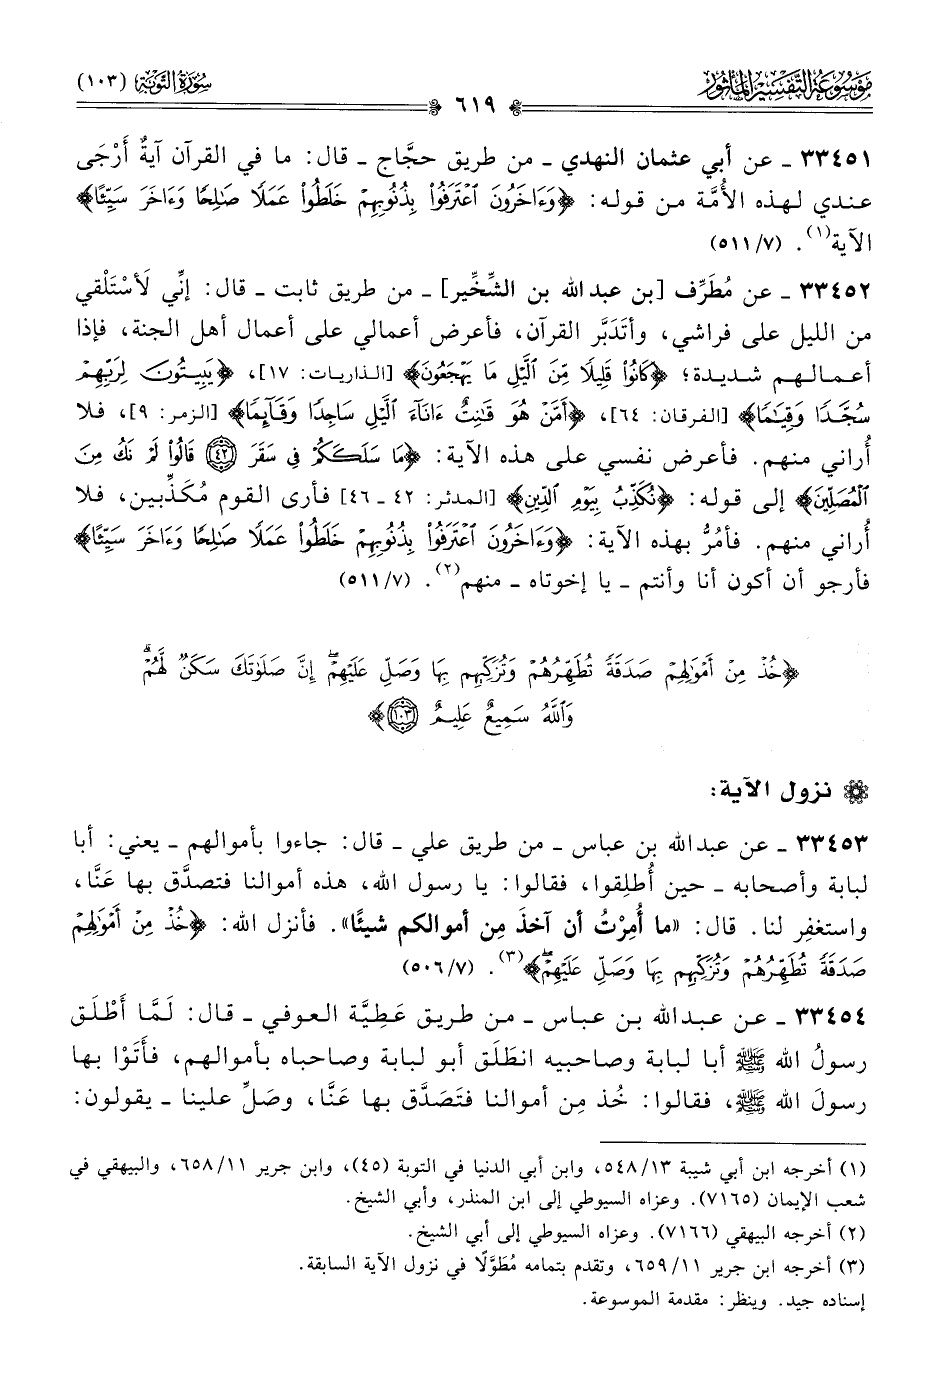 موسوعة التفسير المأثور
سورة التوبة (١٠٣)
٦١٩
٣٣٤٥١ ـ عن أبي عثمان النهدي ـ من طريق حجَّاج ـ قال: ما في القرآن آيةٌ أَرْجَى
عندي لهذه الأُمَّة من قوله: ﴿وَءَاخَرُونَ ٱعْتَرَفُوا۟ بِذُنُوبِهِمْ خَلَطُوا۟ عَمَلًا صَٰلِحًا وَءَاخَرَ سَيِّئًا﴾
الآية(١). (٥١١/٧)
٣٣٤٥٢ ـ عن مُطَرِّف [بن عبدالله بن الشِّخِّير] ـ من طريق ثابت ـ قال: إنِّي لَأسْتَلْقي
من الليل على فراشي، وأتَدَبَّر القرآن، فأعرض أعمالي على أعمال أهل الجنة، فإذا
أعمالهم شديدة؛ ﴿كَانُوا۟ قَلِيلًا مِّنَ ٱلَّيْلِ مَا يَهْجَعُونَ﴾ [الذاريات: ١٧]، ﴿يَبِيتُونَ لِرَبِّهِمْ
سُجَّدًا وَقِيَٰمًا﴾ [الفرقان: ٦٤]، ﴿أَمَّنْ هُوَ قَٰنِتٌ ءَانَآءَ ٱلَّيْلِ سَاجِدًا وَقَآئِمًا﴾ [الزمر: ٩]، فلا
أُراني منهم. فأعرض نفسي على هذه الآية: ﴿مَا سَلَكَكُمْ فِى سَقَرَ ﴿٤٢﴾ قَالُوا۟ لَمْ نَكُ مِنَ
ٱلْمُصَلِّينَ﴾ إلى قوله: ﴿نُكَذِّبُ بِيَوْمِ ٱلدِّينِ﴾ [المدثر: ٤٢ ـ ٤٦] فأرى القوم مُكَذِّبين، فلا
أُراني منهم. فأمُرُّ بهذه الآية: ﴿وَءَاخَرُونَ ٱعْتَرَفُوا۟ بِذُنُوبِهِمْ خَلَطُوا۟ عَمَلًا صَٰلِحًا وَءَاخَرَ سَيِّئًا﴾
فأرجو أن أكون أنا وأنتم ـ يا إخوتاه ـ منهم(٢). (٥١١/٧)
﴿خُذْ مِنْ أَمْوَٰلِهِمْ صَدَقَةً تُطَهِّرُهُمْ وَتُزَكِّيهِم بِهَا وَصَلِّ عَلَيْهِمْ ۖ إِنَّ صَلَوٰتَكَ سَكَنٌ لَّهُمْ ۗ
وَٱللَّهُ سَمِيعٌ عَلِيمٌ ﴿١٠٣﴾﴾
نزول الآية:
٣٣٤٥٣ ـ عن عبدالله بن عباس ـ من طريق علي ـ قال: جاءوا بأموالهم ـ يعني: أبا
لبابة وأصحابه ـ حين أُطلِقوا، فقالوا: يا رسول الله، هذه أموالنا فتصدَّق بها عَنَّا،
واستغفِر لنا. قال: «ما أُمِرْتُ أن آخذَ مِن أموالكم شيئًا». فأنزل الله: ﴿خُذْ مِنْ أَمْوَٰلِهِمْ
صَدَقَةً تُطَهِّرُهُمْ وَتُزَكِّيهِم بِهَا وَصَلِّ عَلَيْهِمْ ۖ﴾(٣). (٥٠٦/٧)
٣٣٤٥٤ ـ عن عبدالله بن عباس ـ من طريق عَطِيَّة العوفي ـ قال: لَمَّا أَطْلَق
رسولُ الله ﷺ أبا لبابة وصاحبيه انطَلَق أبو لبابة وصاحباه بأموالهم، فأَتَوْا بها
رسولَ الله ﷺ، فقالوا: خُذ مِن أموالنا فتَصَدَّق بها عَنَّا، وصَلِّ علينا ـ يقولون:
(١) أخرجه ابن أبي شيبة ٥٤٨/١٣، وابن أبي الدنيا في التوبة (٤٥)، وابن جرير ٦٥٨/١١، والبيهقي في
شعب الإيمان (٧١٦٥). وعزاه السيوطي إلى ابن المنذر، وأبي الشيخ.
(٢) أخرجه البيهقي (٧١٦٦). وعزاه السيوطي إلى أبي الشيخ.
(٣) أخرجه ابن جرير ٦٥٩/١١، وتقدم بتمامه مُطَوَّلًا في نزول الآية السابقة.
إسناده جيد. وينظر: مقدمة الموسوعة.